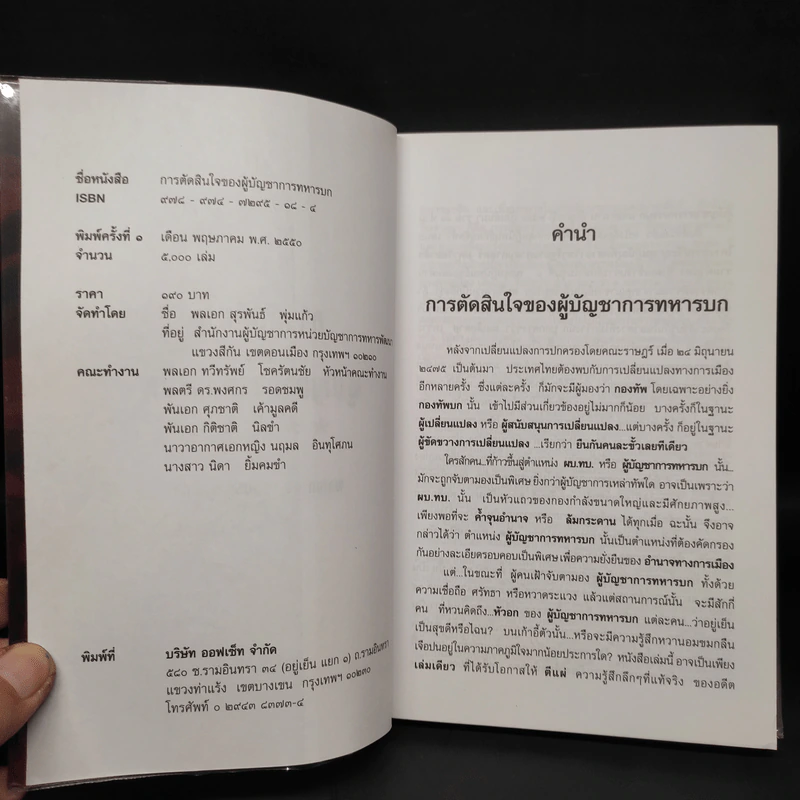 ชื่อหนังสือ การตัดสินใจของผู้บัญชาการทหารบก
ISBN ๙๗๘ - ๙๗๔ - ๗๒๙๕ - ๑๘ - ๔
พิมพ์ครั้งที่ ๑ เดือน พฤษภาคม พ.ศ. ๒๕๕๐
จำนวน ๕,๐๐๐ เล่ม
ราคา ๑๙๐ บาท
จัดทำโดย ชื่อ พลเอก สุรพันธ์ พุ่มแก้ว
ที่อยู่ สำนักงานผู้บัญชาการหน่วยบัญชาการทหารพัฒนา
แขวงสีกัน เขตดอนเมือง กรุงเทพฯ ๑๐๒๑๐
คณะทำงาน พลเอก ทวีทรัพย์ โชครัตนชัย หัวหน้าคณะทำงาน
พลตรี ดร.พงศกร รอดชมพู
พันเอก ศุภชาติ เค้ามูลคดี
พันเอก กิติชาติ นิลขำ
นาวาอากาศเอกหญิง นฤมล อินทุโศภน
นางสาว นิดา ยิ้มคมขำ
พิมพ์ที่ บริษัท ออฟเซ็ท จำกัด
๕๘๐ ซ.รามอินทรา ๓๔ (อยู่เย็น แยก ๑) ถ.รามอินทรา
แขวงท่าแร้ง เขตบางเขน กรุงเทพฯ ๑๐๒๓๐
โทรศัพท์ ๐ ๒๙๔๓ ๘๓๗๓-๔
คำนำ
การตัดสินใจของผู้บัญชาการทหารบก
หลังจากเปลี่ยนแปลงการปกครองโดยคณะราษฎร์ เมื่อ ๒๔ มิถุนายน
๒๔๗๕ เป็นต้นมา ประเทศไทยต้องพบกับการเปลี่ยนแปลงทางการเมือง
อีกหลายครั้ง ซึ่งแต่ละครั้ง ก็มักจะมีผู้มองว่า กองทัพ โดยเฉพาะอย่างยิ่ง
กองทัพบก นั้น เข้าไปมีส่วนเกี่ยวข้องอยู่ไม่มากก็น้อย บางครั้งก็ในฐานะ
ผู้เปลี่ยนแปลง หรือ ผู้สนับสนุนการเปลี่ยนแปลง...แต่บางครั้ง ก็อยู่ในฐานะ
ผู้ขัดขวางการเปลี่ยนแปลง ...เรียกว่า ยืนกันคนละขั้วเลยทีเดียว
ใครสักคน...ที่ก้าวขึ้นสู่ตำแหน่ง ผบ.ทบ. หรือ ผู้บัญชาการทหารบก นั้น...
มักจะถูกจับตามองเป็นพิเศษ ยิ่งกว่าผู้บัญชาการเหล่าทัพใด อาจเป็นเพราะว่า
ผบ.ทบ. นั้น เป็นหัวแถวของกองกำลังขนาดใหญ่และมีศักยภาพสูง...
เพียงพอที่จะ ค้ำจุนอำนาจ หรือ ล้มกระดาน ได้ทุกเมื่อ ฉะนั้น จึงอาจ
กล่าวได้ว่า ตำแหน่ง ผู้บัญชาการทหารบก นั้นเป็นตำแหน่งที่ต้องคัดกรอง
กันอย่างละเอียดรอบคอบเป็นพิเศษ เพื่อความยั่งยืนของ อำนาจทางการเมือง
แต่...ในขณะที่ ผู้คนเฝ้าจับตามอง ผู้บัญชาการทหารบก ทั้งด้วย
ความเชื่อถือ ศรัทธา หรือหวาดระแวง แล้วแต่สถานการณ์นั้น จะมีสักกี่
คน ที่หวนคิดถึง...หัวอก ของ ผู้บัญชาการทหารบก แต่ละคน...ว่าอยู่เย็น
เป็นสุขดีหรือไฉน? บนเก้าอี้ตัวนั้น...หรือจะมีความรู้สึกหวานอมขมกลืน
เจือปนอยู่ในความภาคภูมิใจมากน้อยประการใด? หนังสือเล่มนี้ อาจเป็นเพียง
เล่มเดียว ที่ได้รับโอกาสให้ ตีแผ่ ความรู้สึกลึกๆที่แท้จริง ของอดีต